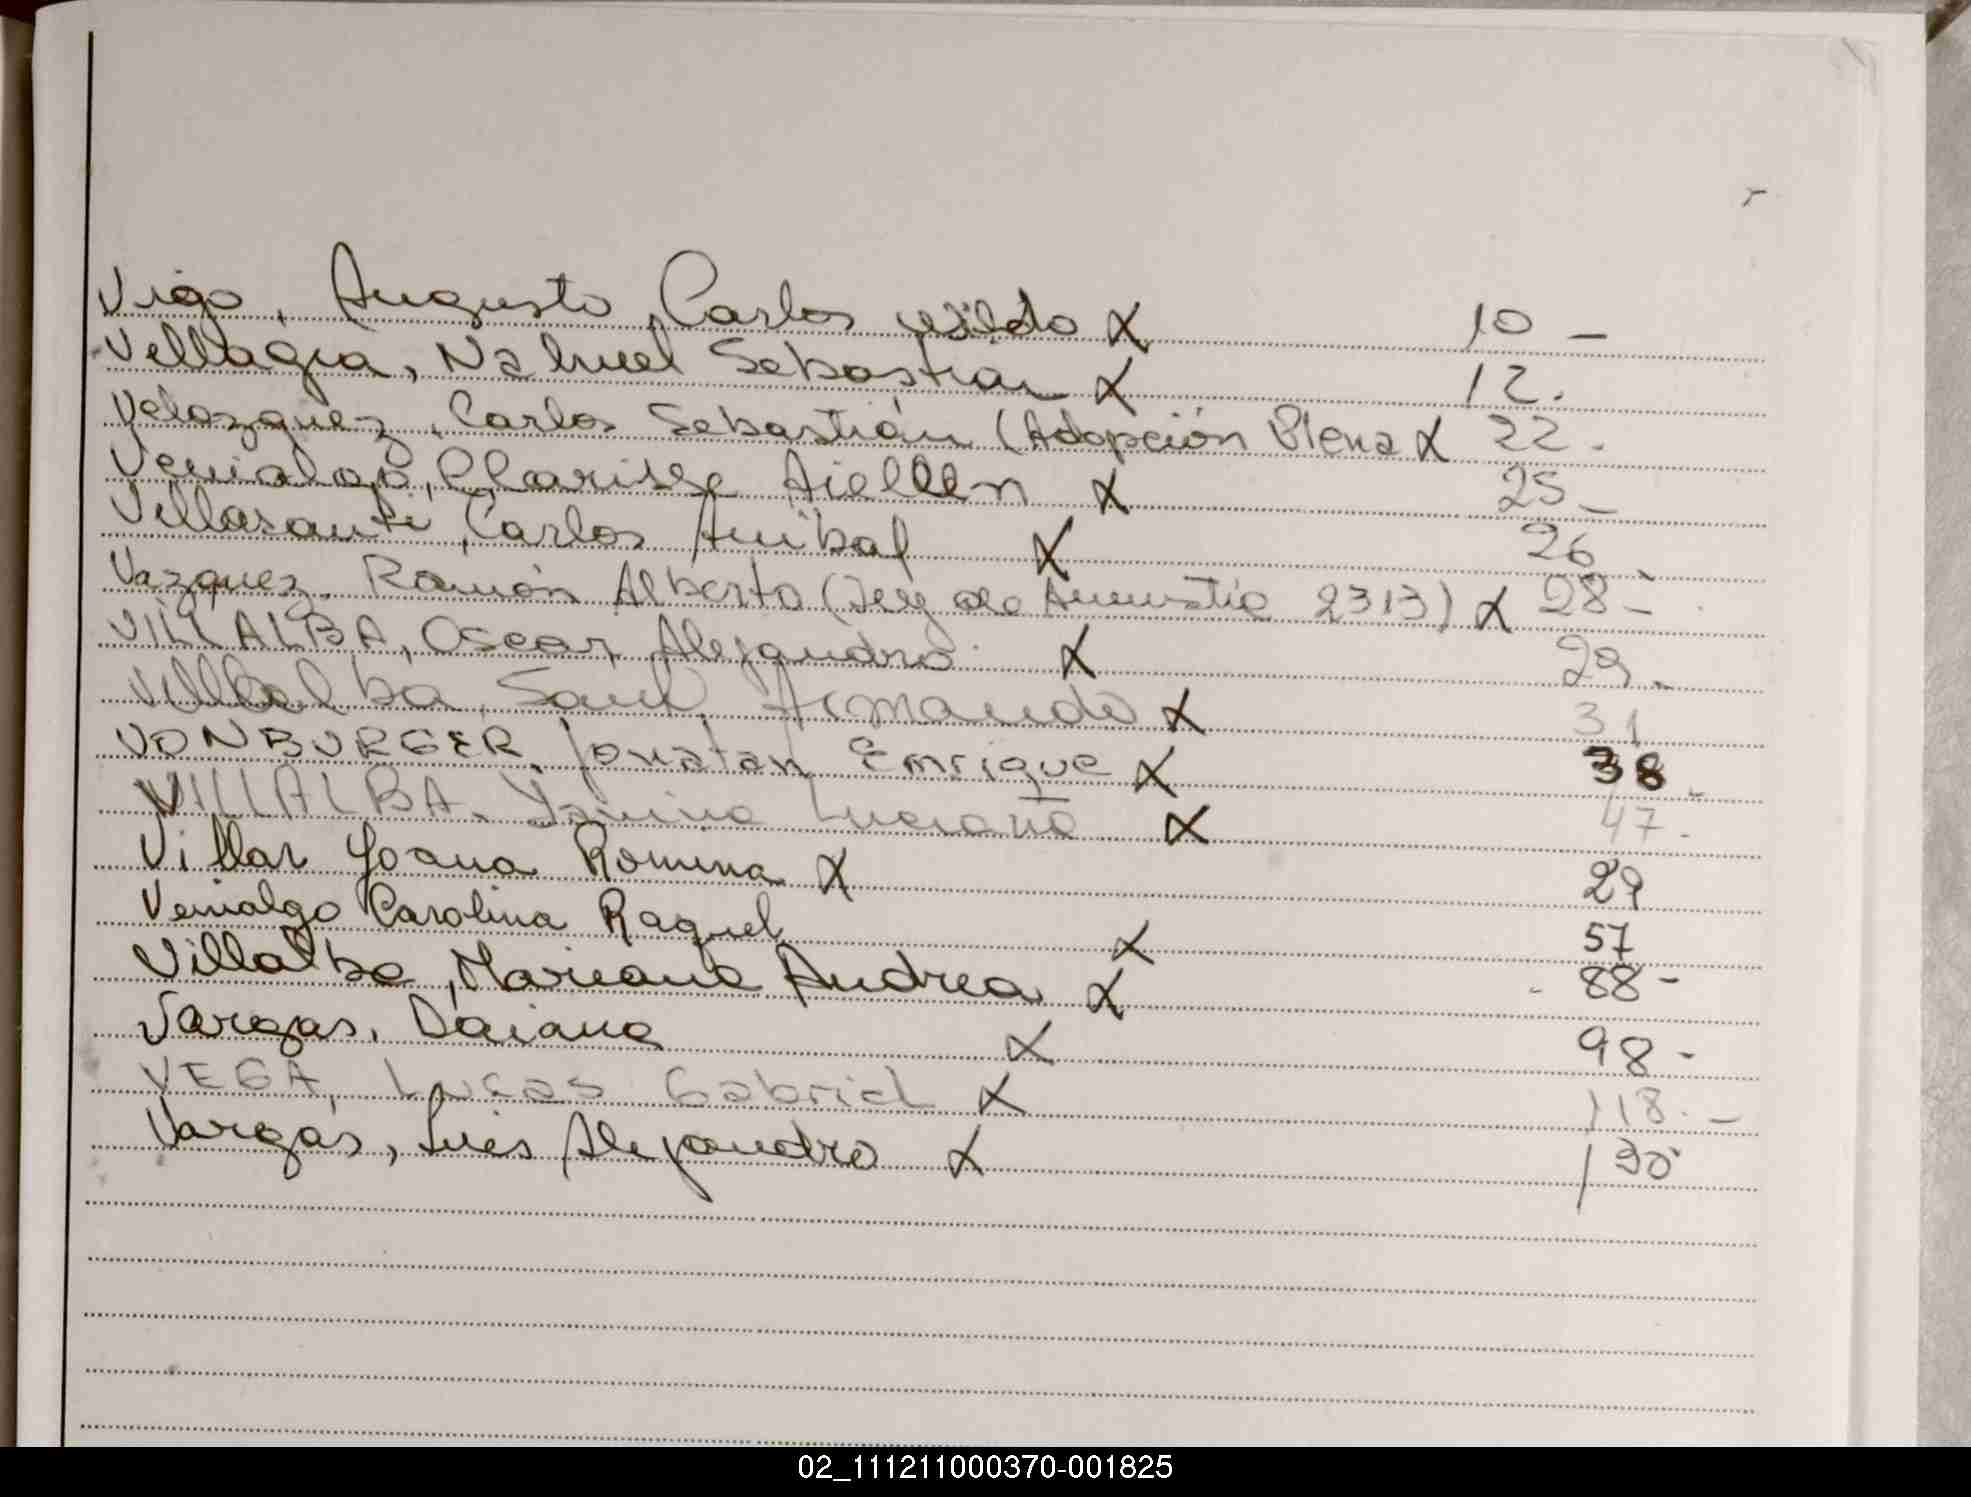 Vigo, Augusto Carlos Wildo X 10 -
Vellagra, Nahuel Sebastian X 12.
Velazquez, Carlos Sebastián (Adopción Plena X 22.
Venialgo, Clarisse Aiellen X 25 -
Villasanti, Carlos Anibal X 26 -
Vazquez, Ramón Alberto (Ley de Amnistia 2313) X 28 -
VILLALBA, Oscar Alejandro X 29 -
Villalba, Saul Armando X 31
VONBURGER, Jonatan Enrique X 38 -
VILLALBA, Yanina Luciana X 47 -
Villar Joana Romina X 29
Venialgo Carolina Raquel X 57
Villalba, Mariana Andrea X 88 -
Vargas, Daiana X 98 -
VEGA, Lucas Gabriel X 118. -
Vargas, Luis Alejandro X
02_111211000370-001825